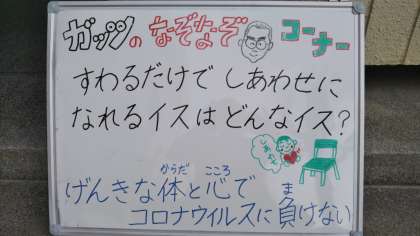 ガッツのなぞなぞコーナー
すわるだけで しあわせに
なれるイスは どんなイス？
しあわせ
げんきな体と心で
からだ こころ
コロナウイルスに負けない
ま